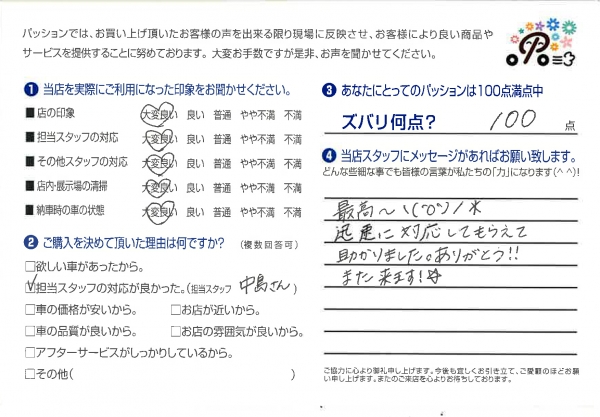 パッションでは、お買い上げ頂いたお客様の声を出来る限り現場に反映させ、お客様により良い商品や
サービスを提供することに努めております。大変お手数ですが是非、お声を聞かせてください。
1 当店を実際にご利用になった印象をお聞かせください。
■店の印象 大変良い 良い 普通 やや不満 不満
■担当スタッフの対応 大変良い 良い 普通 やや不満 不満
■その他スタッフの対応 大変良い 良い 普通 やや不満 不満
■店内・展示場の清掃 大変良い 良い 普通 やや不満 不満
■納車時の車の状態 大変良い 良い 普通 やや不満 不満
2 ご購入を決めて頂いた理由は何ですか? (複数回答可)
□欲しい車があったから。
☑担当スタッフの対応が良かった。(担当スタッフ 中島さん)
□車の価格が安いから。 □お店が近いから。
□車の品質が良いから。 □お店の雰囲気が良いから。
□アフターサービスがしっかりしているから。
□その他( )
3 あなたにとってのパッションは100点満点中
ズバリ何点? 100 点
4 当店スタッフにメッセージがあればお願い致します。
どんな些細な事でも皆様の言葉が私たちの「力」になります(^^)!
最高〜ヽ(^o^)ノ*
迅速に対応してもらえて
助かりました。ありがとう!!
また来ます!
ご協力に心より御礼申し上げます。今後も宜しくお引き立て、ご愛顧のほどお願
い申し上げます。またのご来店を心よりお待ちしております。